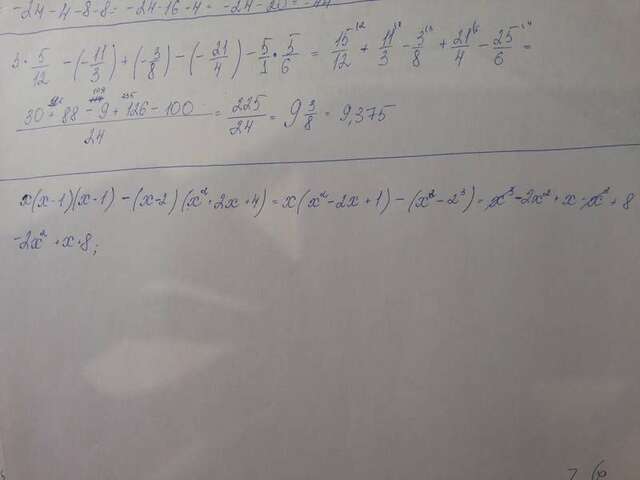 -24-4-8-8=-24-16-4=-24-20=-44
3·5/12-(-11/3)+(-3/8)-(-21/4)-5/1·5/6=15/12+11/3-3/8+21/4-25/6=
30+88-9+126-100/24=225/24=9 3/8=9,375
x(x-1)(x-1)-(x-2)(x²+2x+4)=x(x²-2x+1)-(x³-2³)=x³-2x²+x-x³+8
-2x²+x+8;